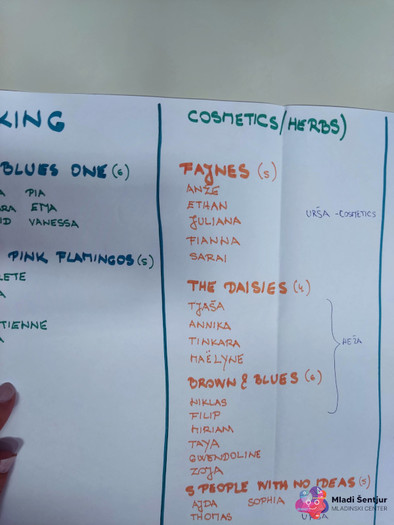 KING
COSMETICS/HERBS)
BLUES ONE (6)
A PIA
RA EMA
ID VANESSA
PINK FLAMINGOS (5)
LETE
A
TIENNE
A
FAYNES (5)
ANŽE
ETHAN
JULIANA
FIANNA
SARAI
URŠA - COSMETICS
THE DAISIES (4)
TJAŠA
ANNIKA
TINKARA
MAËLYNE
NEŽA
BROWN & BLUES (6)
NIKLAS
FILIP
MIRIAM
TAYA
GWENDOLINE
ZOJA
5 PEOPLE WITH NO IDEAS (5)
AJDA SOPHIA
THOMAS
Mladi Šentjur
MLADINSKI CENTER